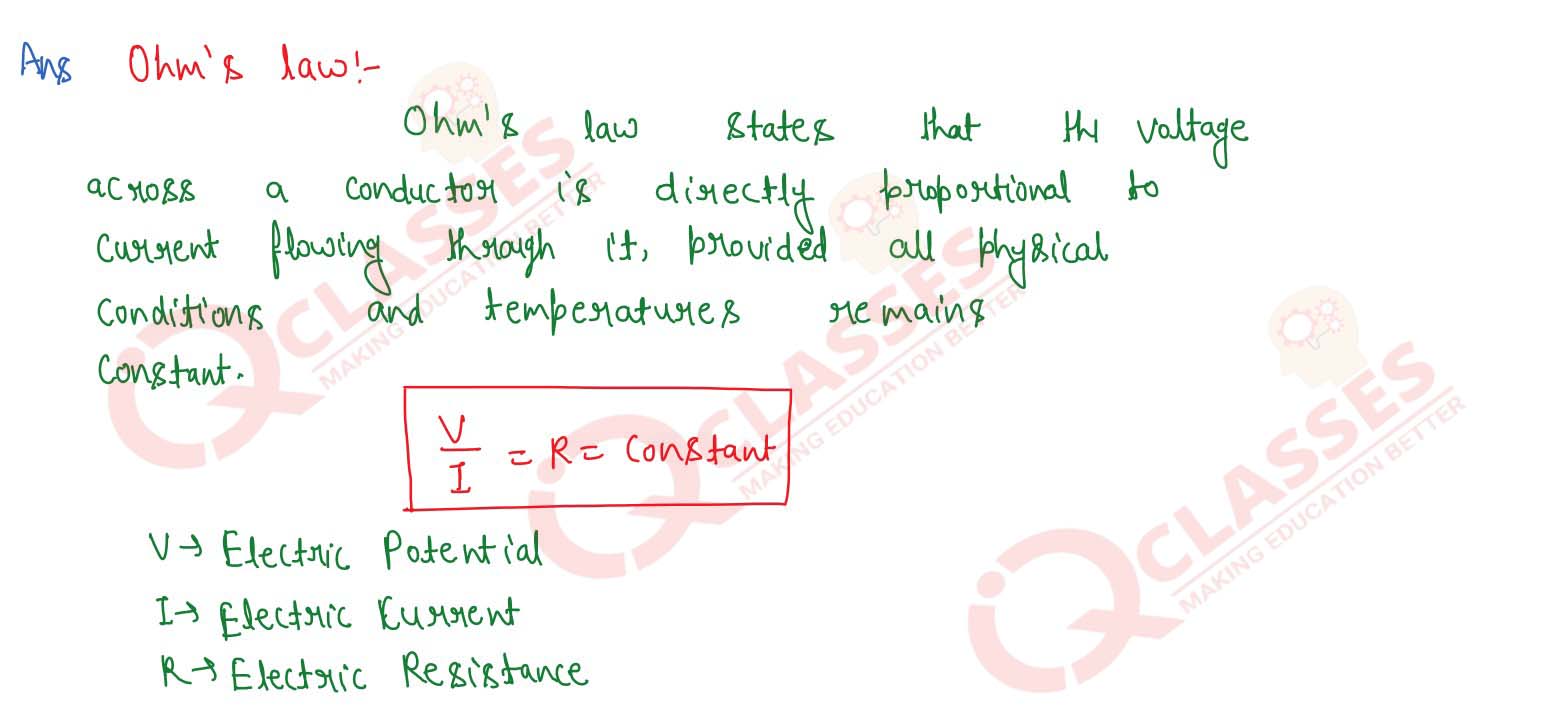 Ans Ohm's law:-
Ohm's law states that the voltage
across a conductor is directly proportional to
current flowing through it, provided all physical
Conditions and temperatures remains
Constant.
V/I = R = Constant
V→ Electric Potential
I→ Electric Current
R→ Electric Resistance
iQ CLASSES
MAKING EDUCATION BETTER
iQ CLASSES
MAKING EDUCATION BETTER
iQ CLASSES
MAKING EDUCATION BETTER